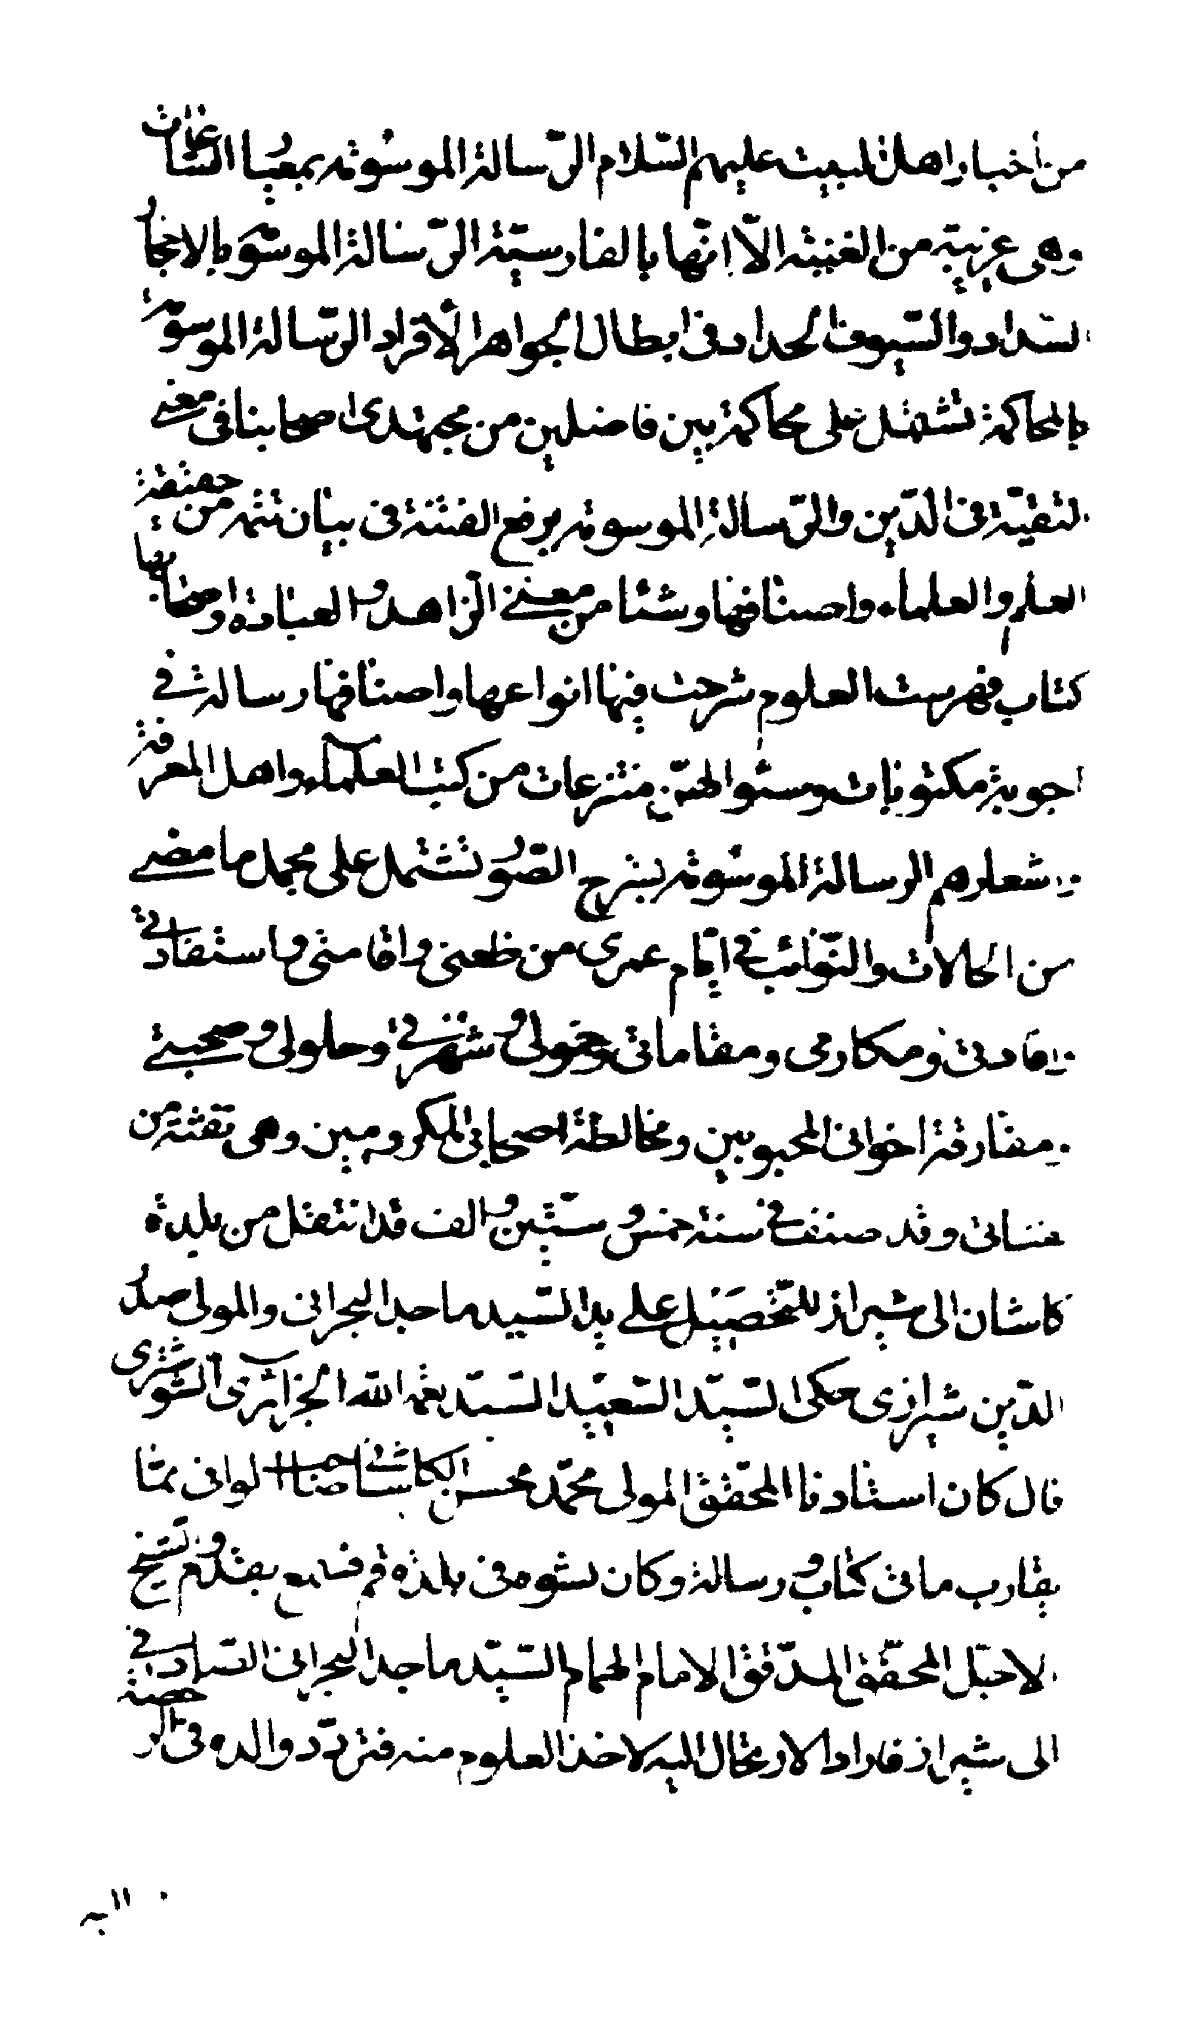 من أخبار اهل البيت عليهم السّلام الرّسالة الموسومة بمعيار الساعات
وهى غريبة من الغنيته الاّ انّها بالفارسيّة الرّسالة الموسومة بالاحجار
الشداد والسّيوف الحداد فى ابطال الجواهر الأفراد الرّسالة الموسومة
بالمحاكمة تشتمل على محاكمة بين فاضلين من مجتهدى اصحابنا فى معنى
التفقّه فى الدّين والرّسالة الموسومة برفع الفتنة فى بيان نتمه من حقيقة
العلم والعلماء واصنافها وشئا من معنى الزّاهد والعبادة واصحابها
كتاب فهرست العلوم شرحت فيها انواعها واصنافها رسالة فى
اجوبة مكتوبات وسئوالهنّ منتزعات من كتب العلماء واهل المعرفة
واشعارهم الرسالة الموسومة بشرح الصّدر تشتمل على مجمل ما مضى
من الحالات والنّوائب فى ايّام عمرى من ظعنى واقامتى واستفادتى
وافادتى ومكارمى ومقاماتى وخمولى وشهرتى وحلولى وصحبتى
ومفارقة اخوانى المحبوبين ومخالطة اصحابى المكرومين وهى نفثة من
نفثاتى وقد صنفت فى سنة خمس وستّين والف قد انتقل من بلدة
كاشان الى شيراز للتّحصيل على يد السّيد ماجد البحرانى والمولى صدر
الدّين شيرازى حكى السّيّد السّعيد السيّد نعمة الله الجزآئرى الشوشترى
قال كان استادنا المحقّق المولى محمّد محسن الكاشانى صاحب الوافى ممّا
يقارب مأتى كتاب ورسالة وكان نشوه فى بلدة قم فسمع بقدوم الشيخ
الاجّل المحقّق المدقّق الامام الهمام السّيّد ماجد البحرانى الصّادقى
الى شيراز فاراد الارتحال اليه لاخذ العلوم منه فتردّد والده فى الرخصة